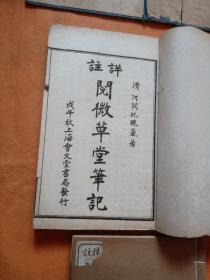 清河間紀曉嵐著
詳註
閱微草堂筆記
戊午秋上海會文堂書局發行
詳註